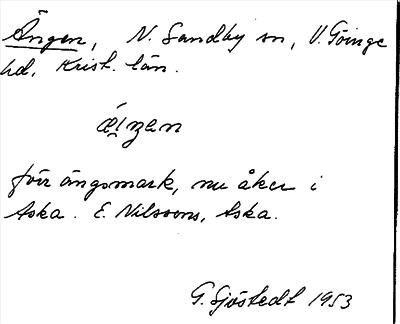 Ängen, N. Sandby sn, V. Göinge
hd, Krist. län.
förr ängsmark, nu åker i
Aska. E. Nilssons, Aska.
G. Sjöstedt 1953